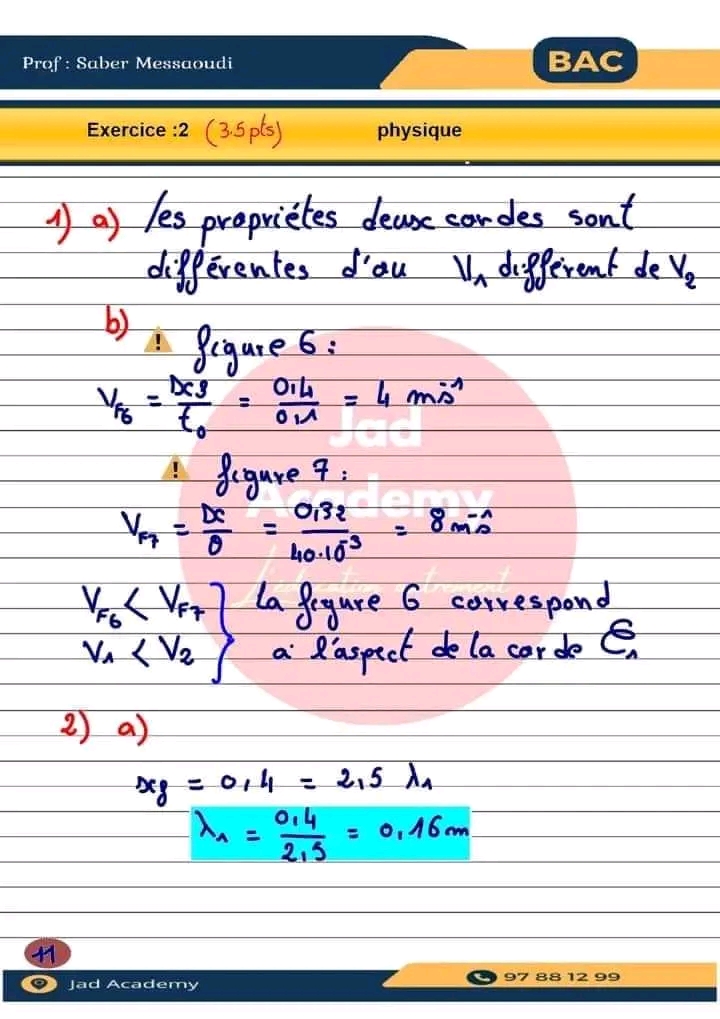 Prof : Saber Messaoudi
BAC
Exercice :2 (3.5 pts) physique
1) a) les propriétes deux cordes sont
différentes d'au V₁ différent de V₂
b)
! figure 6 :
V_F6 = xf/t₀ = 0,4/0,1 = 4 ms⁻¹
! figure 7 :
V_F7 = x/θ = 0,32/40.10⁻³ = 8 ms⁻¹
V_F6 < V_F7 } La figure 6 correspond
V₁ < V₂ a l'aspect de la corde C₁
2) a)
xf = 0,4 = 2,5 λ₁
λ₁ = 0,4/2,5 = 0,16 m
Jad
Academy
L'éducation autrement
11
Jad Academy
97 88 12 99